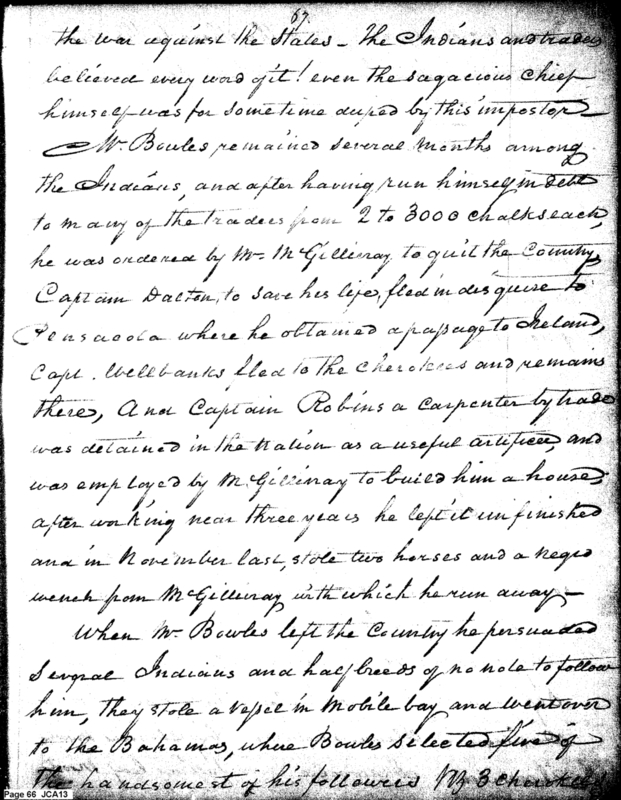 67.
the war against the States – the Indians and traders
believed every word of it! even the sagacious chief
himself was for some time duped by this impostor –
Mr. Bowles remained several months among
the Indians, and after having run himself in debt
to many of the traders from 2 to 3000 chalks each,
he was ordered by Mr. McGillivray to quit the Country,
Captain Dalton, to save his life, fled in disguise to
Pensacola where he obtained a passage to Ireland,
Capt. Wellbanks fled to the Cherokees and remains
there, And Captain Robins a carpenter by trade
was detained in the Nation as a useful artificer, and
was employed by McGillivray to build him a house,
after working near three years he left it unfinished
and in November last, stole two horses and a negro
wench from McGillivray with which he run away –
When Mr. Bowles left the Country he persuaded
Several Indians and half breeds of no note to follow
him, they stole a vessel in Mobile bay and went over
to the Bahamas, where Bowles selected five of
the handsomest of his followers viz 3 cherokees
Page 66 JCA13